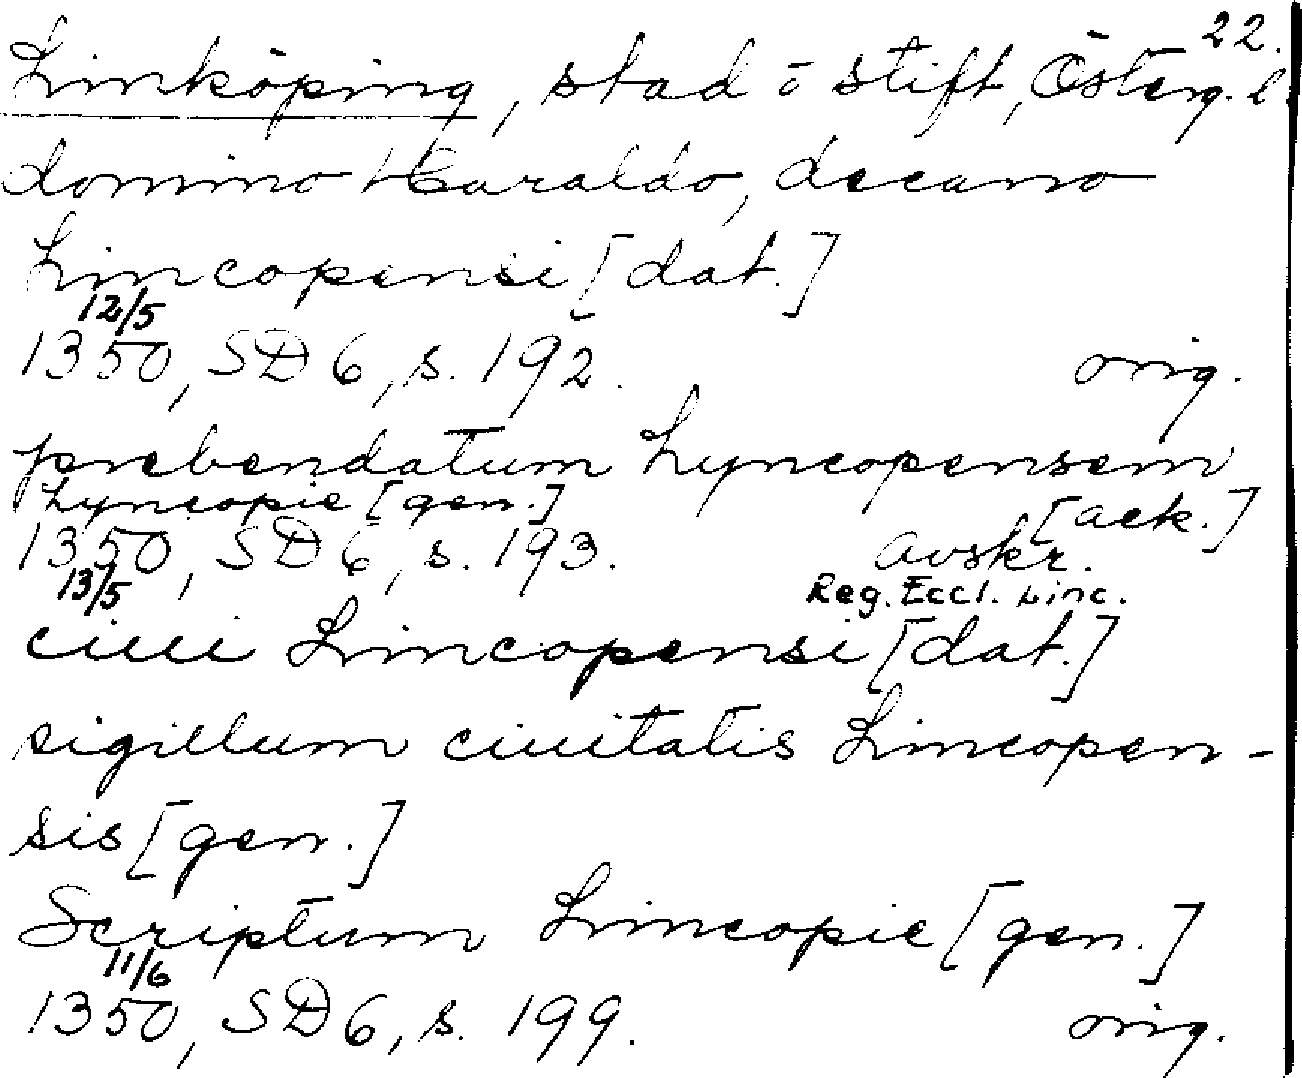 22.
Linköping, stad o stift, Österg. l
domino Haraldo, decano
Lincopensi [dat.]
12/5
1350, SD 6, s. 192. orig.
prebendatum Lyncopensem
Lyncopie [gen.] [ack.]
1350, SD 6, s. 193. avskr.
13/5 Reg. Eccl. Linc.
ciui Lincopensi [dat.]
sigillum ciuitatis Lincopen-
sis [gen.]
Scriptum Lincopie [gen.]
11/6
1350, SD 6, s. 199. orig.